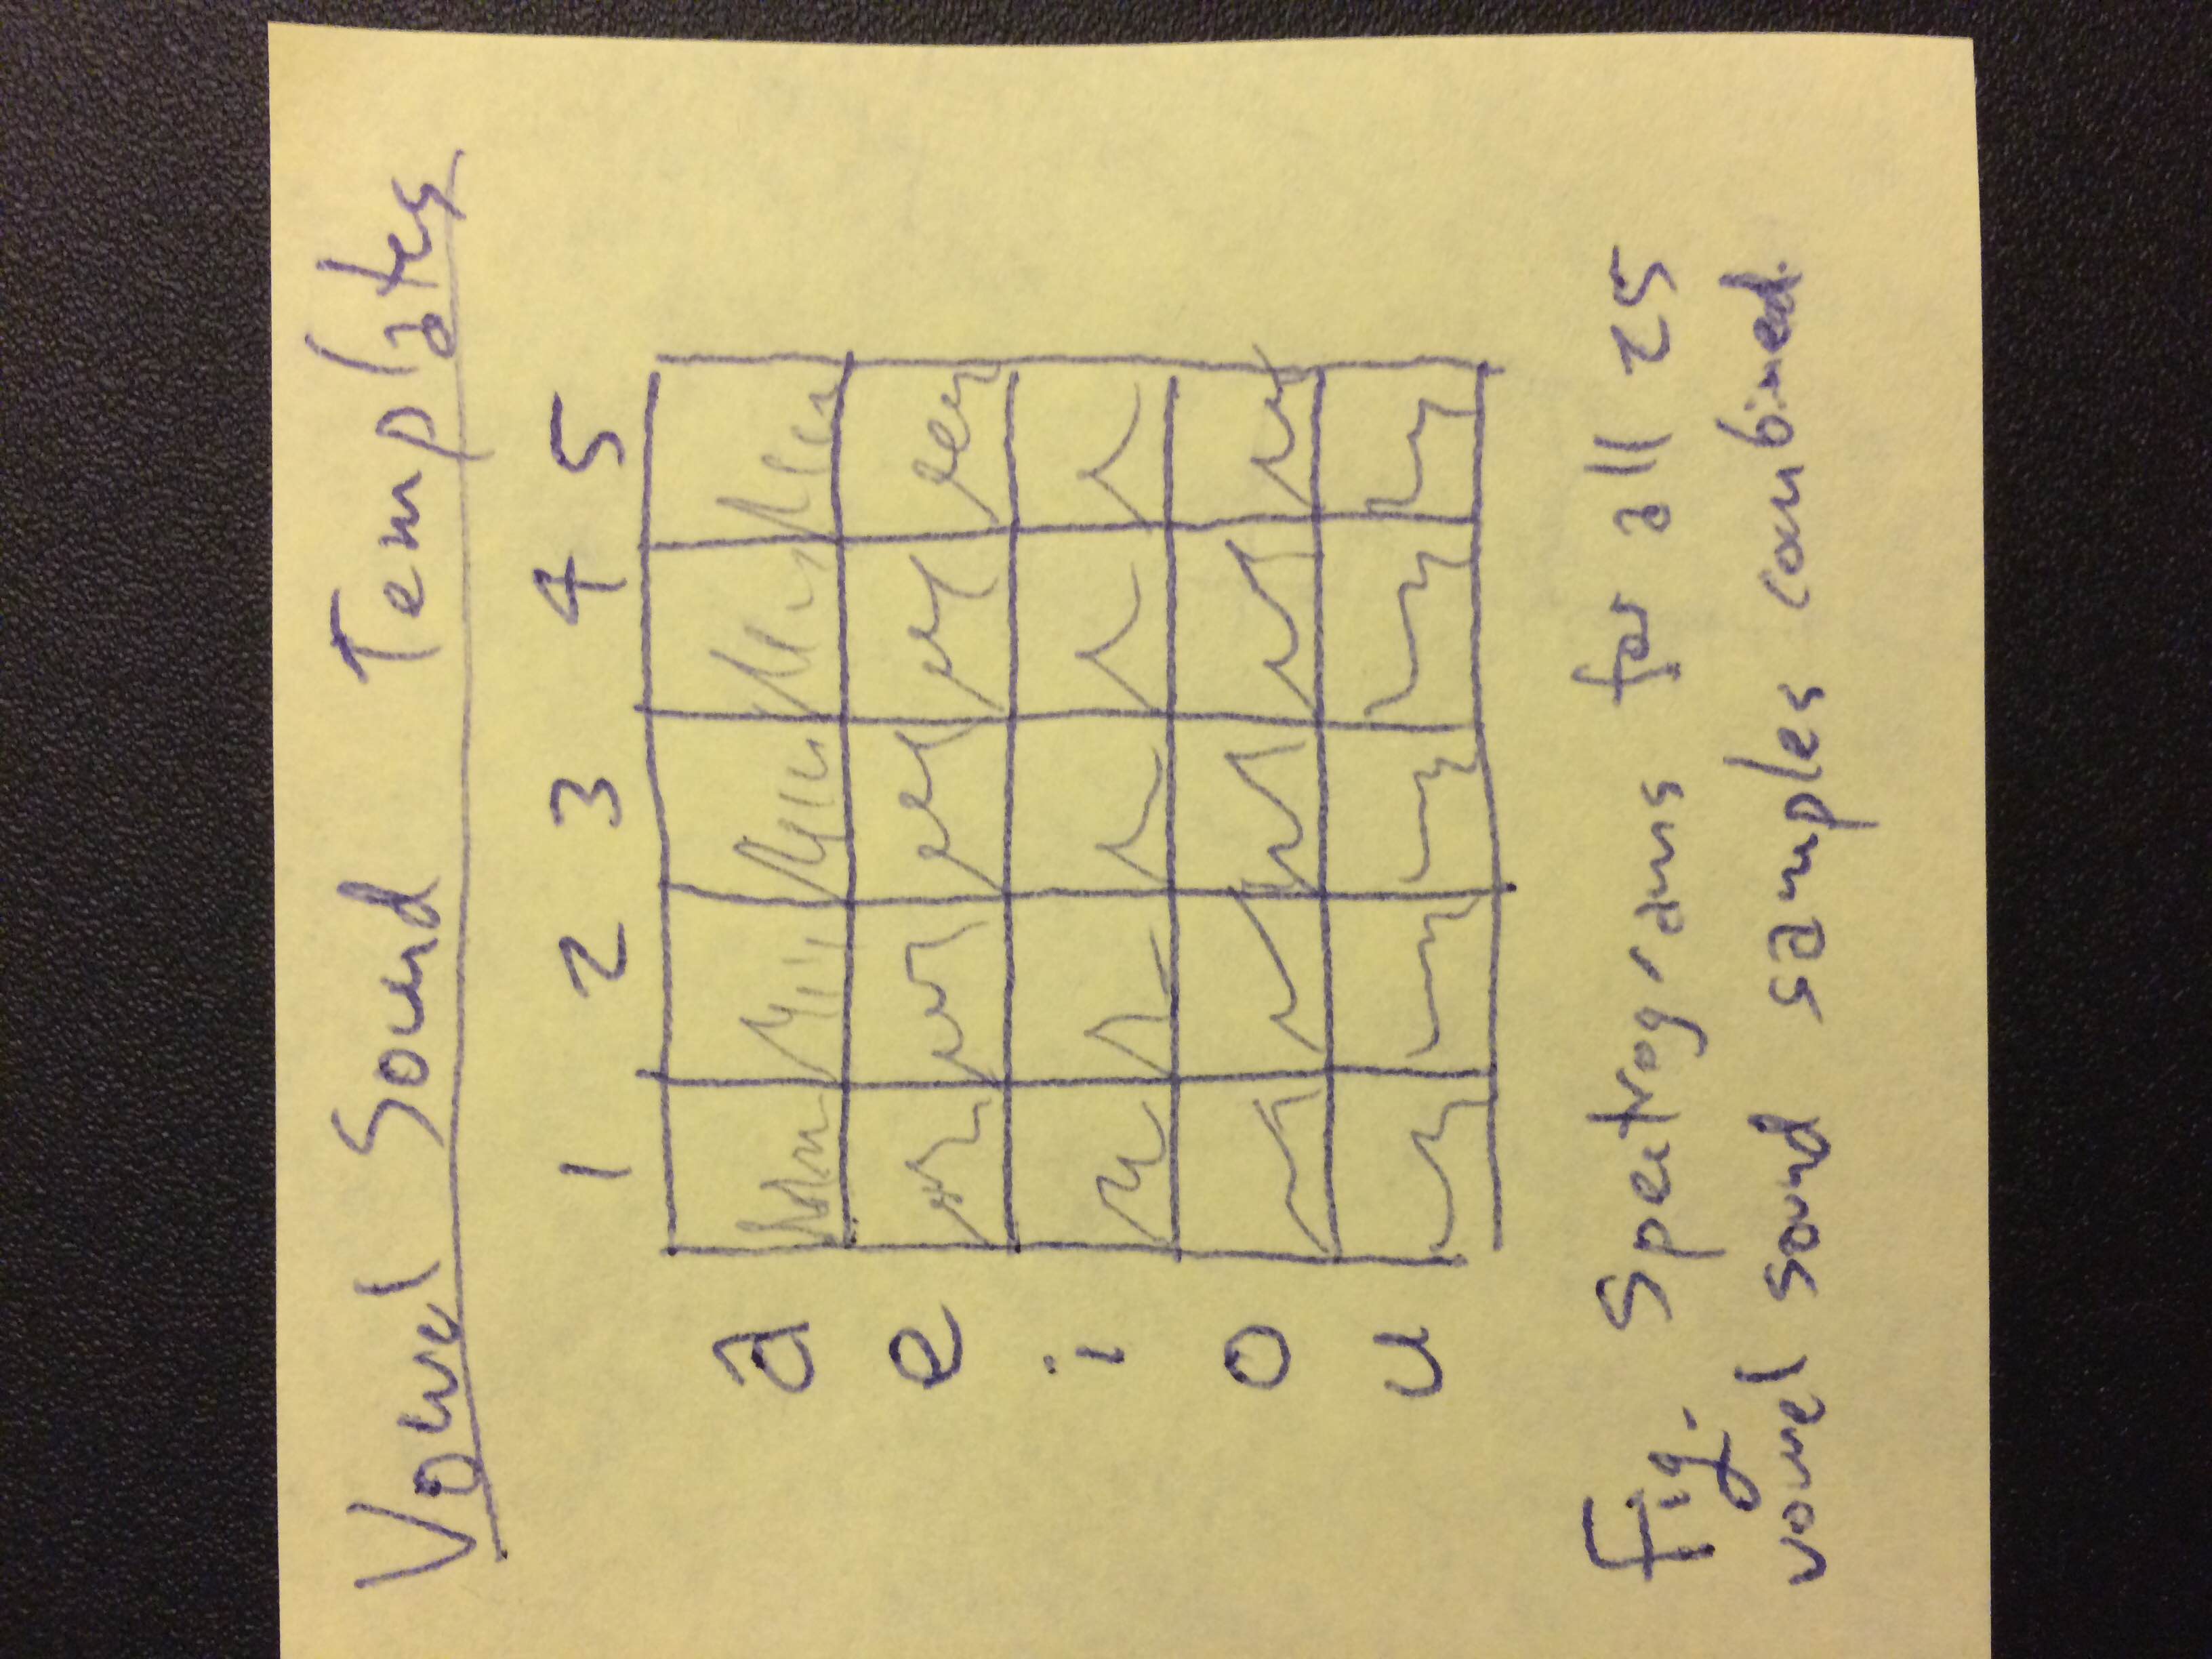 Vowel Sound Templates
1 2 3 4 5
a
e
i
o
u
Fig. Spectrograms for all 25
vowel sound samples combined.